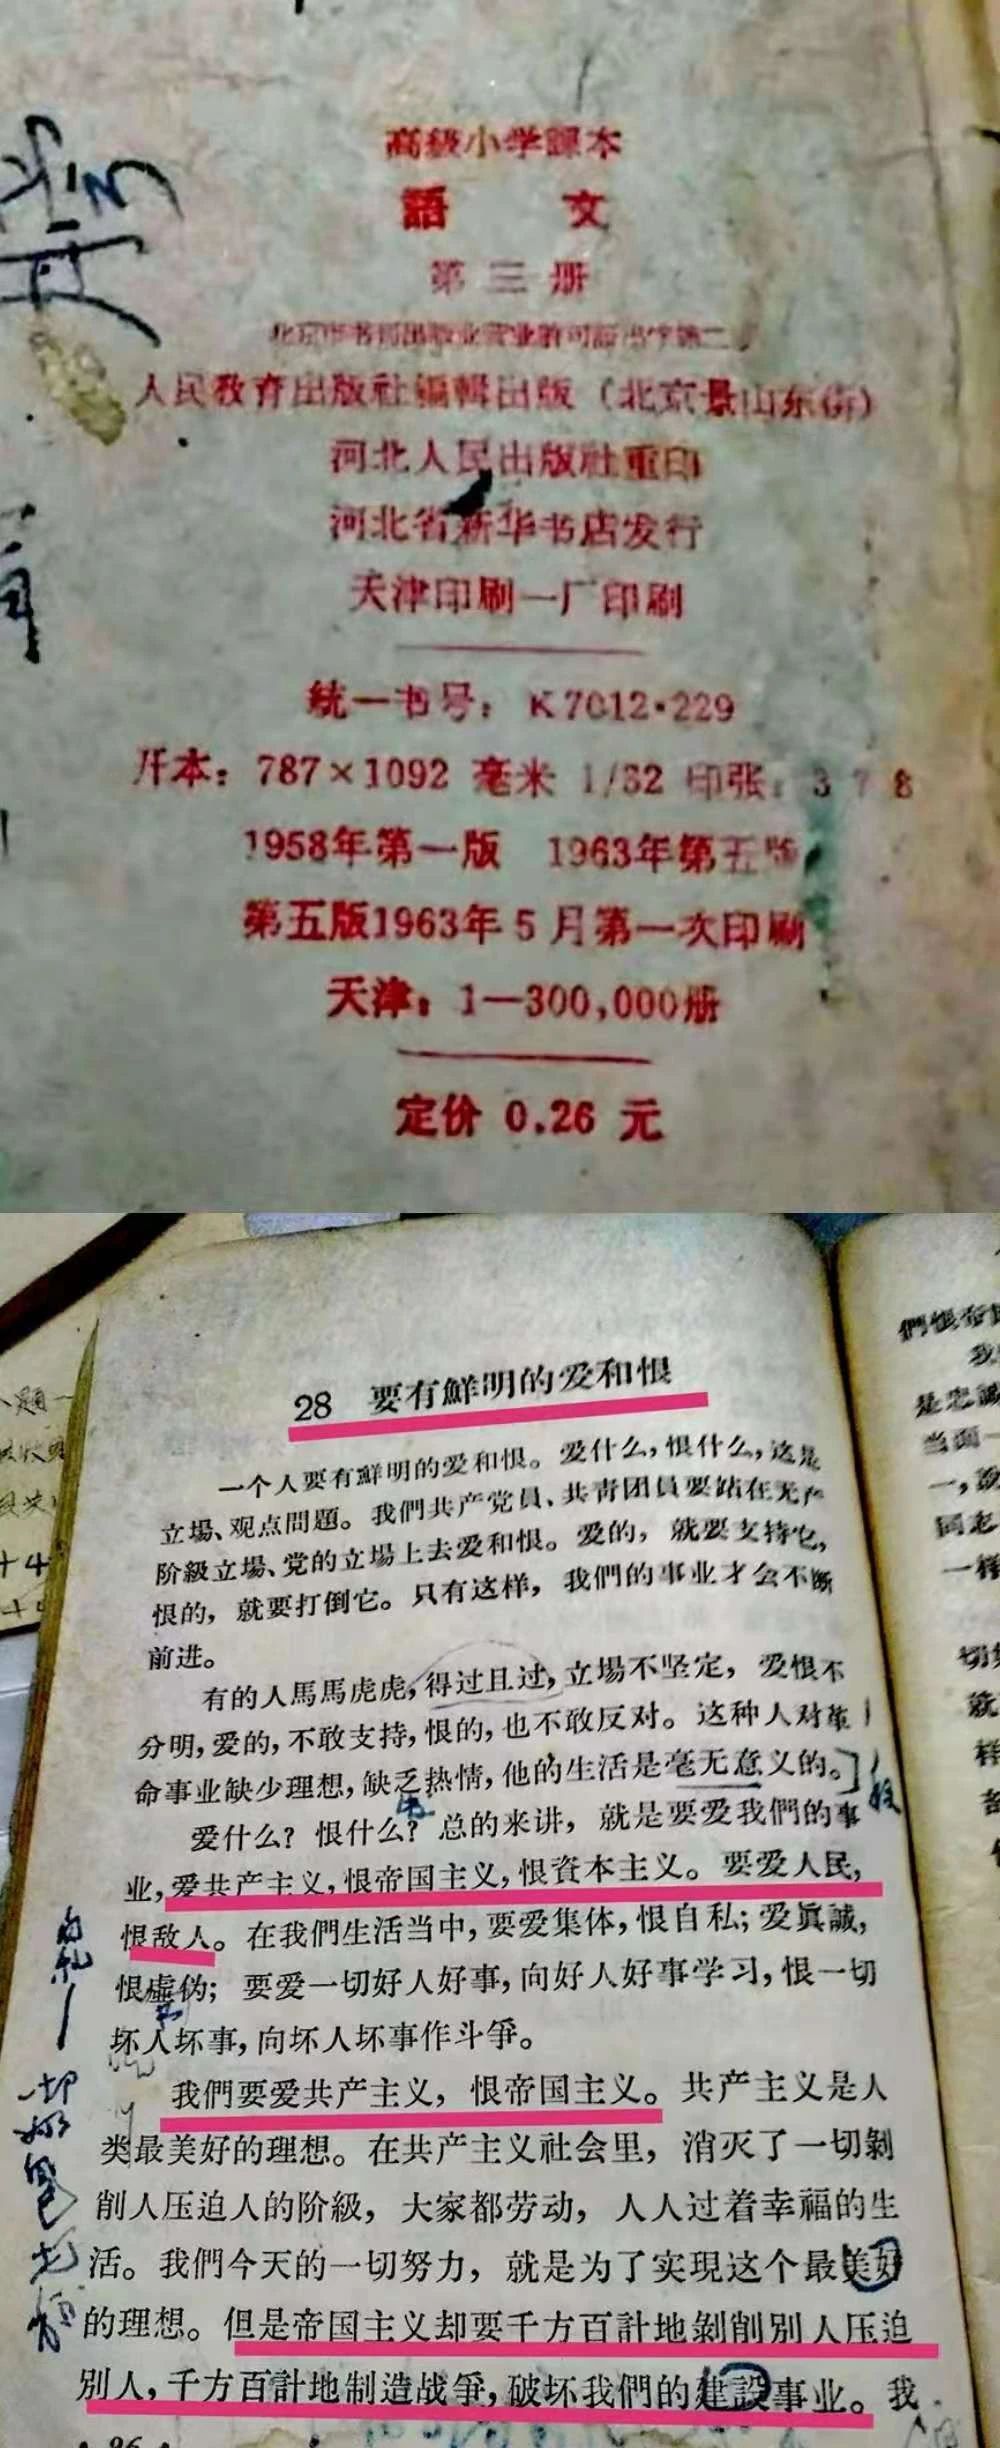 高級小学課本
語 文
第三册
人民教育出版社編輯出版（北京景山东街）
河北人民出版社重印
河北省新华书店发行
天津印刷一厂印刷
統一书号：K7012·229
开本：787×1092 毫米 1/32 印张：3 7 8
1958年第一版 1963年第五版
第五版1963年5月第一次印刷
天津：1—300,000册
定价 0.26 元
28 要有鮮明的爱和恨
一个人要有鮮明的爱和恨。爱什么，恨什么，这是
立場、观点問題。我們共产党員、共青团員要站在无产
阶級立場、党的立場上去爱和恨。爱的，就要支持它，
恨的，就要打倒它。只有这样，我們的事业才会不断
前进。
有的人馬馬虎虎，得过且过，立場不坚定，爱恨不
分明，爱的，不敢支持，恨的，也不敢反对。这种人对革
命事业缺少理想，缺乏热情，他的生活是毫无意义的。
爱什么？恨什么？总的来讲，就是要爱我們的事
业，爱共产主义，恨帝国主义，恨資本主义。要爱人民，
恨敌人。在我們生活当中，要爱集体，恨自私；爱眞誠，
恨虛伪；要爱一切好人好事，向好人好事学习，恨一切
坏人坏事，向坏人坏事作斗爭。
我們要爱共产主义，恨帝国主义。共产主义是人
类最美好的理想。在共产主义社会里，消灭了一切剝
削人压迫人的阶級，大家都劳动，人人过着幸福的生
活。我們今天的一切努力，就是为了实現这个最美好
的理想。但是帝国主义却要千方百計地剝削別人压迫
別人，千方百計地制造战爭，破坏我們的建設事业。我
96
們恨帝
我
是忠誠
当面一
一，
同志
一样
切
就
样